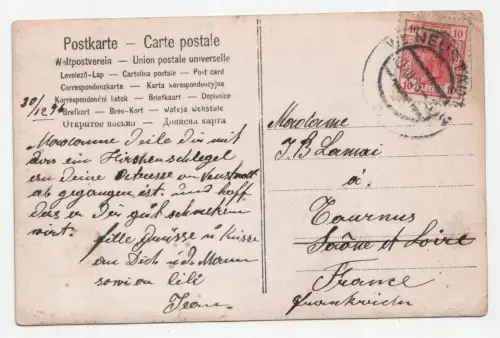 Postkarte – Carte postale
Weltpostverein – Union postale universelle
Levelező-Lap – Cartolina postale – Post card
Correspondenzkarte – Karta korespondencyjna
Korrespondenční listek – Briefkaart – Dopisnice
Brefkort – Brev-Kort – Waleja Wehstule
Открытое письмо – Дописна карта
30/12.
Teile Dir mit
das ein Hirschenschlegel
an Deine Adresse von Neustadt
ab gegangen ist. und hoff
das er Dir gut schmeken
wirt. fille Grüsse u Küsse
an Dich u d. Mann
sowi an Lili
Jean
10 10
Madame
J B Lamai
à
Tournus
Saône et Loire
France
Frankreich